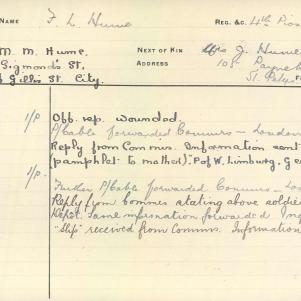 NAME F. L. Hume REG. &C. 4th Pion
M. M. Hume. NEXT OF KIN Mrs J. Hume
Sigmonds St. ADDRESS 105 Payneh
Gilles St. City. St. Peter
1/P Off. rep. wounded.
P/Cable forwarded Commrs — London
Reply from Commrs. Information sent
(pamphlet to mother). P of W. Limburg, Ge
1/P. Further P/Cable forwarded Commrs — Lo
Reply from Commrs stating above soldie
Depot. Same information forwarded
"Slip" received from Commrs. Information